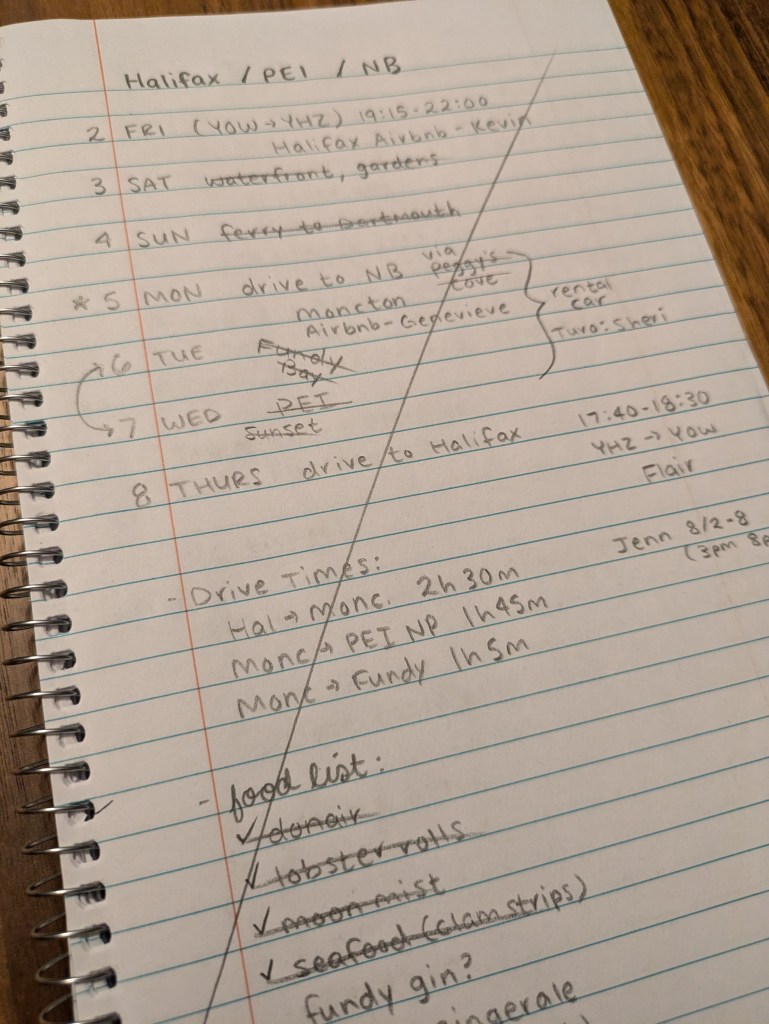 Halifax / PEI / NB
2 FRI (YOW → YHZ) 19:15-22:00
Halifax Airbnb - Kevin
3 SAT waterfront, gardens
4 SUN ferry to Dartmouth
* 5 MON drive to NB via peggy's cove
Moncton
Airbnb - Genevieve
rental car
Turo: Sheri
6 TUE Fundy Bay
7 WED PEI
sunset
8 THURS drive to Halifax
17:40-18:30
YHZ → YOW
Flair
Jenn 8/2-8
(3pm
- Drive Times:
Hal → Monc. 2h 30m
Monc → PEI NP 1h 45m
Monc → Fundy 1h 5m
- food list:
✓ donair
✓ lobster rolls
✓ moon mist
✓ seafood (clam strips)
fundy gin?